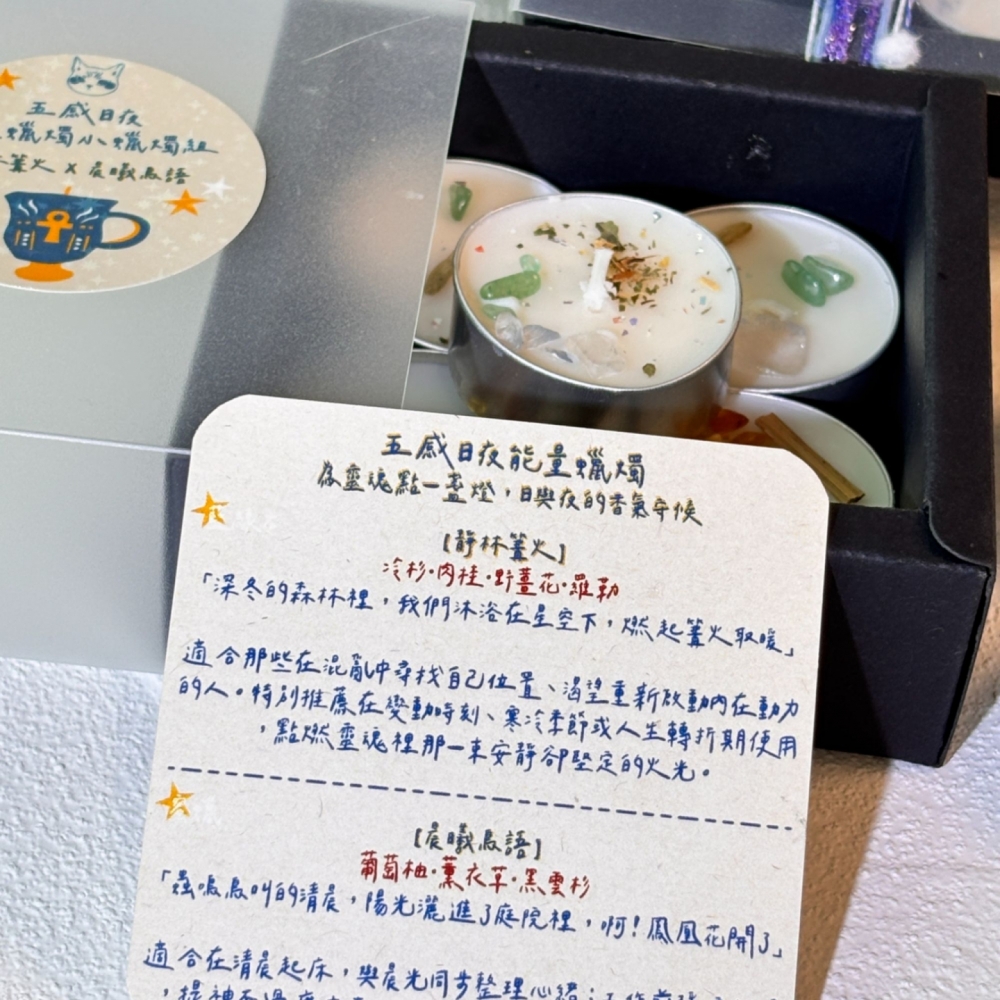 五感日夜
蠟燭小蠟燭組
篝火 x 晨曦鳥語
五感日夜能量蠟燭
為靈魂點一盞燈，日與夜的香氣守候
【靜林篝火】
冷杉·肉桂·野薑花·羅勒
「深冬的森林裡，我們沐浴在星空下，燃起篝火取暖」
適合那些在混亂中尋找自己位置、渴望重新啟動內在動力
的人。特別推薦在變動時刻、寒冷季節或人生轉折期使用
，點燃靈魂裡那一束安靜卻堅定的火光。
【晨曦鳥語】
葡萄柚·薰衣草·黑雲杉
「蟲鳴鳥叫的清晨，陽光灑進了庭院裡，啊！鳳凰花開了」
適合在清晨起床，與晨光同步整理心緒；
，提神不過度